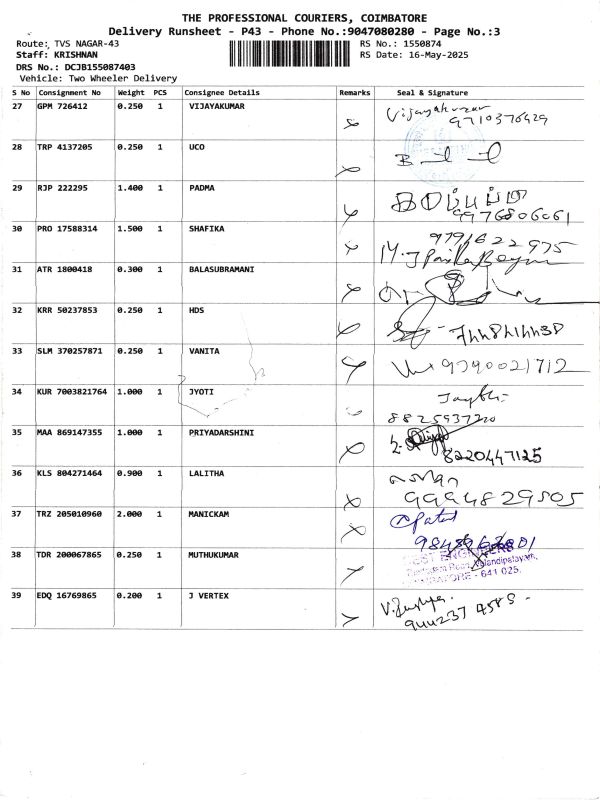 THE PROFESSIONAL COURIERS, COIMBATORE
Delivery Runsheet - P43 - Phone No.:9047080280 - Page No.:3
Route: TVS NAGAR-43 RS No.: 1550874
Staff: KRISHNAN RS Date: 16-May-2025
DRS No.: DCJB155087403
Vehicle: Two Wheeler Delivery
S No Consignment No Weight PCS Consignee Details Remarks Seal & Signature
27 GPM 726412 0.250 1 VIJAYAKUMAR Vijayakumar
9710376929
28 TRP 4137205 0.250 1 UCO
29 RJP 222295 1.400 1 PADMA
9976806061
30 PRO 17588314 1.500 1 SHAFIKA 9791622975
31 ATR 1800418 0.300 1 BALASUBRAMANI
32 KRR 50237853 0.250 1 HDS
33 SLM 370257871 0.250 1 VANITA 9790021712
34 KUR 7003821764 1.000 1 JYOTI
8825937220
35 MAA 869147355 1.000 1 PRIYADARSHINI
8220447125
36 KLS 804271464 0.900 1 LALITHA
9994829505
37 TRZ 205010960 2.000 1 MANICKAM
38 TDR 200067865 0.250 1 MUTHUKUMAR
39 EDQ 16769865 0.200 1 J VERTEX